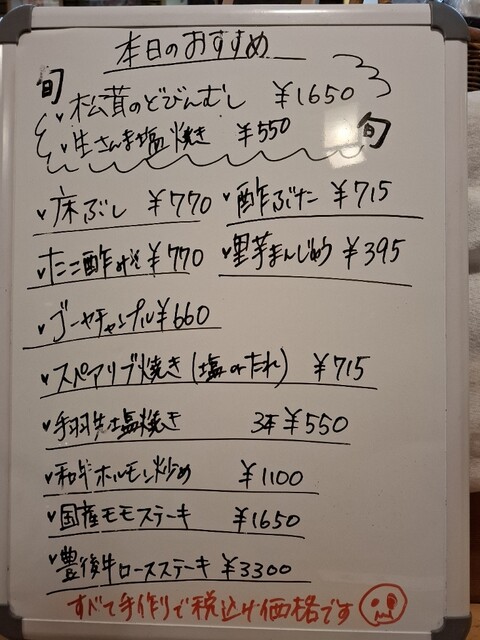 本日のおすすめ
旬
・松茸のどびんむし ¥1650
・生さんま塩焼き ¥550
旬
・床ぶし ¥770 ・酢ぶた ¥715
・たこ酢みそ ¥770 ・里芋まんじゅう ¥395
・ゴーヤチャンプル ¥660
・スペアリブ焼き(塩orたれ) ¥715
・手羽先塩焼き 3本 ¥550
・和牛ホルモン炒め ¥1100
・国産モモステーキ ¥1650
・豊後牛ロースステーキ ¥3300
すべて手作りで税込け価格です